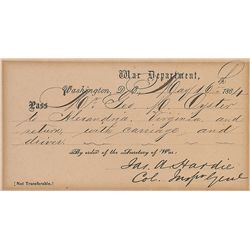 War Department,
Washington, D. C., May 6th 1864
Pass Mr. Geo. M. Oyster
to Alexandria Virginia and
return, with carriage and
driver.
By order of the Secretary of War:
Jas. A. Hardie
Col. Insp. Genl
[Not Transferable.]